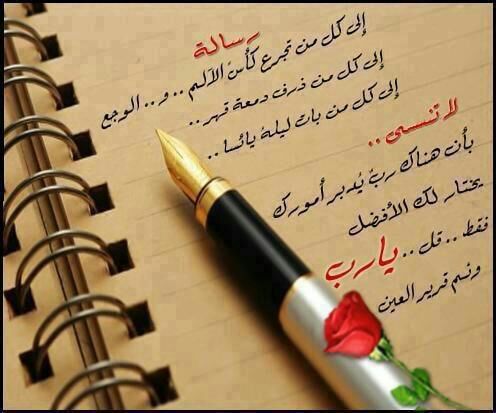 رسالة
إلى كل من تجرع كأس الألم .. و .. الوجع
إلى كل من ذرف دمعة قهر ..
إلى كل من بات ليلهُ يائسا ..
لا تنسى ..
بأن هناك ربٌ يُدبر أمورك
يختار لك الأفضل
فقط .. قل .. يارب
ونم قرير العين